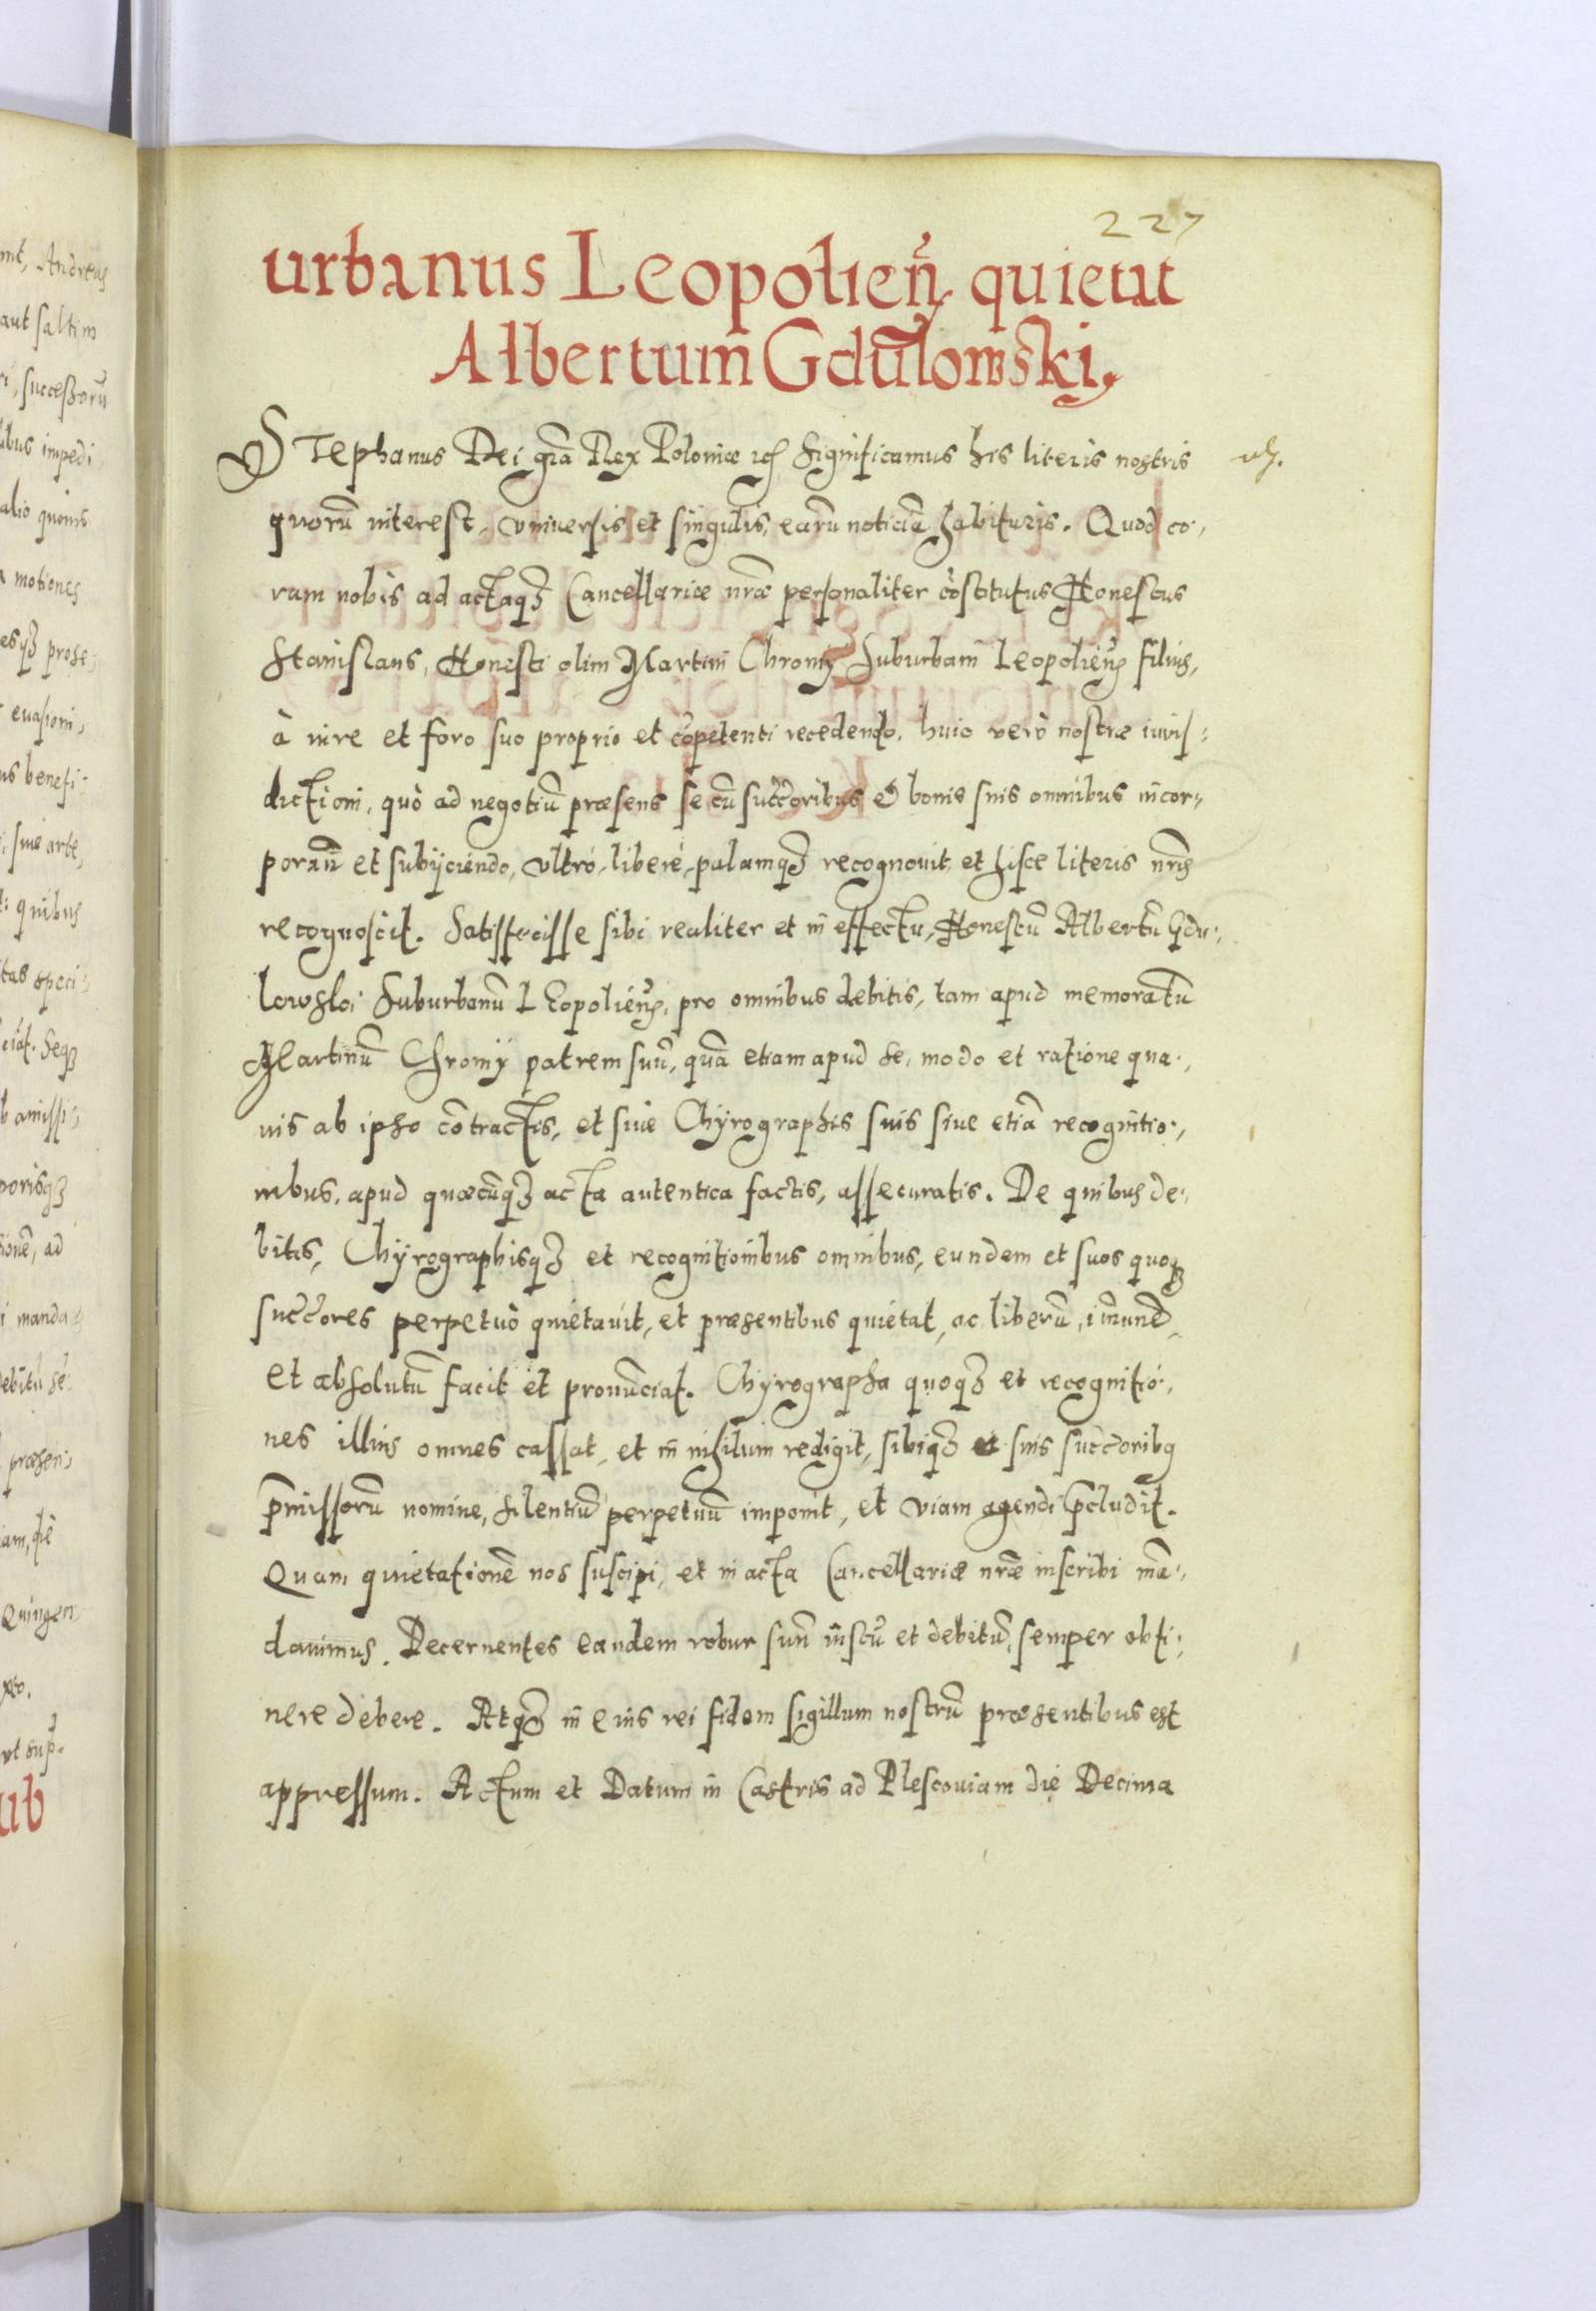 227
urbanus Leopolieñ quietat
Albertum Gdulowski.
Stephanus Dei grã Rex Poloniæ etc Significamus his literis nostris
quorũ interest, vniuersis et singulis, earũ noticiã habituris. Quod co-
ram nobis ad actaqz Cancellariæ nrãe personaliter cõstitutus Honestus
Stanislaus, Honesti olim Martini Chromy Suburbani Leopolieñ filius,
à iure et foro suo proprio et cõpetenti recedendo, huic verò nostræ iuris-
dictioni, quò ad negotiũ præsens se cũ succ̃oribus et bonis suis omnibus incor-
porañ et subijciendo, vltrò, liberè, palamqz recognouit et hisce literis nris
recognoscit. Satisfecisse sibi realiter et in effectu, Honestũ Albertũ Gdu-
lowski Suburbanũ Leopolieñ, pro omnibus debitis, tam apud memoratũ
Martinũ Chromy patrem suũ, quã etiam apud se, modo et ratione qua-
uis ab ipso cõtractis, et siue Chyrographis suis siue etiã recognitio-
nibus, apud quæcũqz acta autentica factis, assecuratis. De quibus de-
bitis, Chyrographisqz et recognitionibus omnibus, eundem et suos quoqz
succ̃ores perpetuò quietauit, et præsentibus quietat, ac liberũ, im̃unẽ
et absolutũ facit et pronũciat. Chyrographa quoqz et recognitio-
nes illius omnes cassat, et in nihilum redigit, sibiqz et suis succ̃oribq
p̃missorũ nomine, silentiũ perpetuũ imponit, et viam agendi p̃cludit.
Quam quietationẽ nos suscipi, et in acta Cancellariæ nrãe inscribi mã-
dauimus. Decernentes eandem robur suũ iustũ et debitũ, semper obti-
nere debere. Atqz in eius rei fidem sigillum nostrũ præsentibus est
appressum. Actum et Datum in Castris ad Plescouiam die Decima